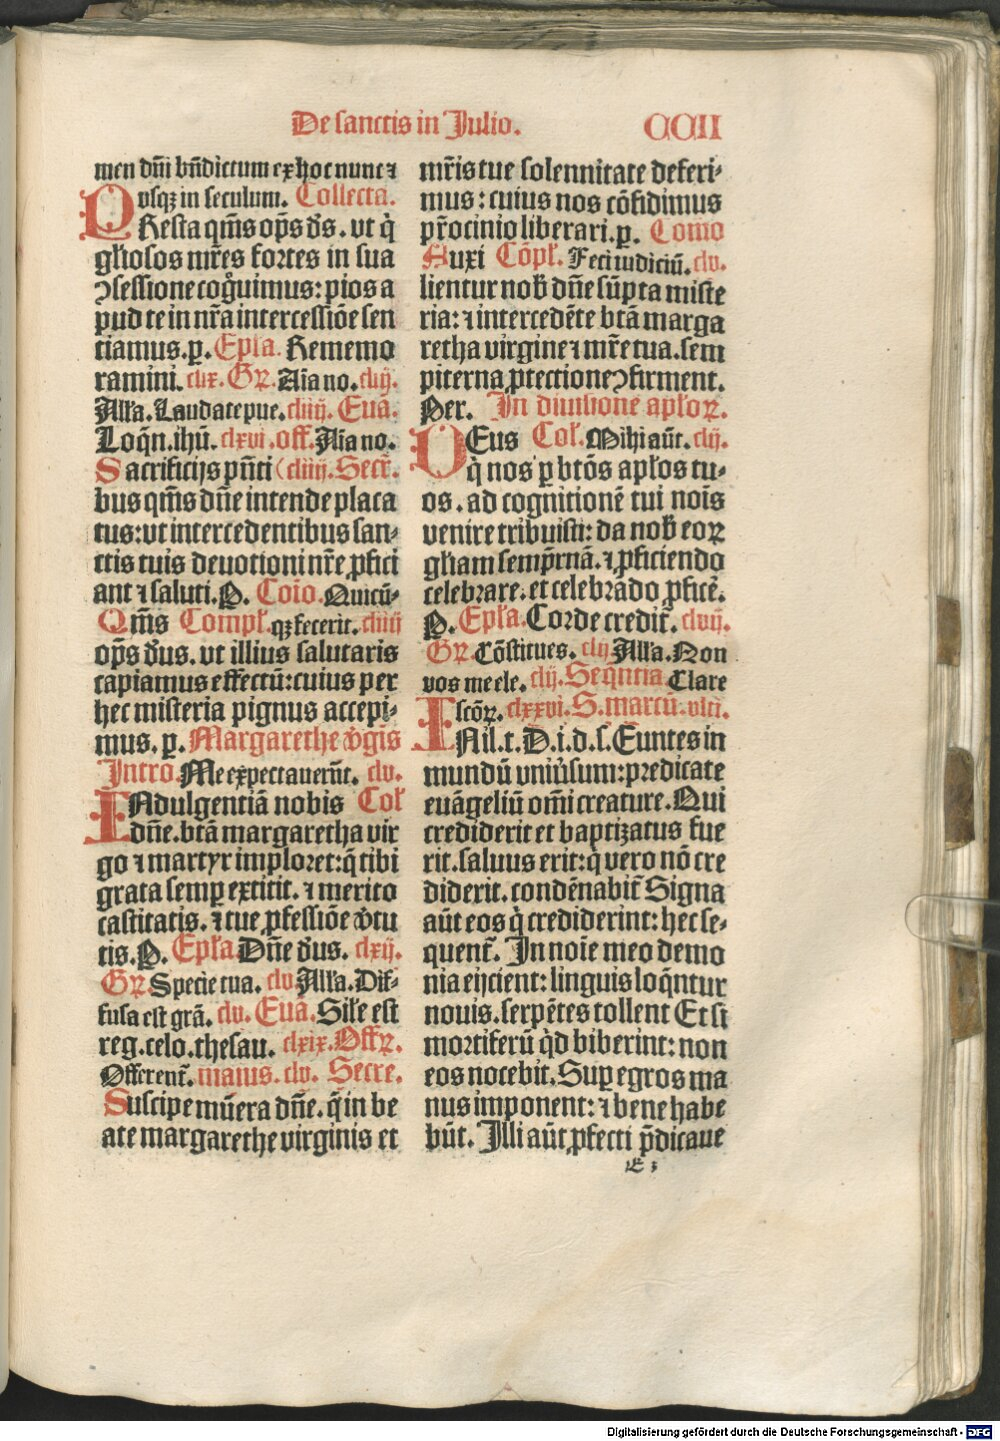 De sanctis in Julio. CCII
men dñi bñdictum ex hoc nunc ⁊
vsqꝫ in seculum. Collecta.
QResta qm̃s op̃s ds̃. vt q̇
gl̃iosos mr̃es fortes in sua
ꝯfessione cog̃uimus: pios a
pud te in nr̃a intercessiõe sen
tiamus. p. Ep̃la. Rememo
ramini. clix. Gꝝ. Aĩa no. cliij.
All̃a. Laudate pue. cliiij. Euã.
Loq̃n. ihũ. clxvi. off. Aĩa no.
Sacrificijs pñti (cliiij. Secr̃.
bus qm̃s dñe intende placa
tus: vt intercedentibus san⸗
ctis tuis deuotioni nr̃e ꝓfici
ant ⁊ saluti. P. Coĩo. Quicũ⸗
Qm̃s Compl̃. qꝫ fecerit. cliiij
op̃s ds̃. vt illius salutaris
capiamus effectũ: cuius per
hec misteria pignus accepi⸗
mus. p. Margarethe ṽgĩs
Intro. Me expectauerũt. clv.
INdulgentiã nobis Col̃
dñe. btã margaretha vir
go ⁊ martyr imploret: q̃ tibi
grata semꝑ extitit. ⁊ merito
castitatis. ⁊ tue ꝓfessiõe ṽtu
tis. P. Ep̃la. Dñe ds̃. clxij.
Gꝝ. Specie tua. clv All̃a. Dif⸗
fusa est grã. clv. Euã. Sil̃e est
reg. celo. thesau. clxix. Offꝝ.
Offerent̃. maius. clv. Secre.
Suscipe mũera dñe. q̃ in be
ate margarethe virginis et
mr̃is tue solennitate deferi⸗
mus: cuius nos cõfidimus
pr̃ocinio liberari. p. Com̃o
Auxi Cõpl̃. Feci iudiciũ. clv.
lientur nob̃ dñe sũpta miste
ria: ⁊ intercedẽte btã marga
retha virgine ⁊ mr̃e tua. sem
piterna ꝓtectione ꝯfirment.
Per. In diuisione apl̃oꝝ.
DEus Col̃. Mihi aũt. clij.
q̇ nos ꝑ btõs apl̃os tu⸗
os. ad cognitionẽ tui noĩs
venire tribuisti: da nob̃ eoꝝ
gl̃iam semp̃rnã. ⁊ ꝓficiendo
celebrare. et celebrãdo ꝓficẽ.
P. Ep̃la. Corde credit̃. clvij.
Gꝝ. Cõstitues. clij All̃a. Non
vos me ele. clij. Seqñtia Clare
scõꝝ. clxxvi. S. marcũ. vlti.
INil. t. D. i. d. s. Euntes in
mundũ vniũsum: predicate
euãgeliũ om̃i creature. Qui
crediderit et baptizatus fue
rit. saluus erit: q̇ vero nõ cre
diderit. condẽnabit̃ Signa
aũt eos q̇ crediderint: hec se⸗
quent̃. In noĩe meo demo
nia eijcient: linguis loq̃ntur
nouis. serpẽtes tollent Et si
mortiferũ q̇d biberint: non
eos nocebit. Suꝑ egros ma
nus imponent: ⁊ bene habe
būt. Illi aũt ꝓfecti p̃dicaue
E 3
Digitalisierung gefördert durch die Deutsche Forschungsgemeinschaft - DFG